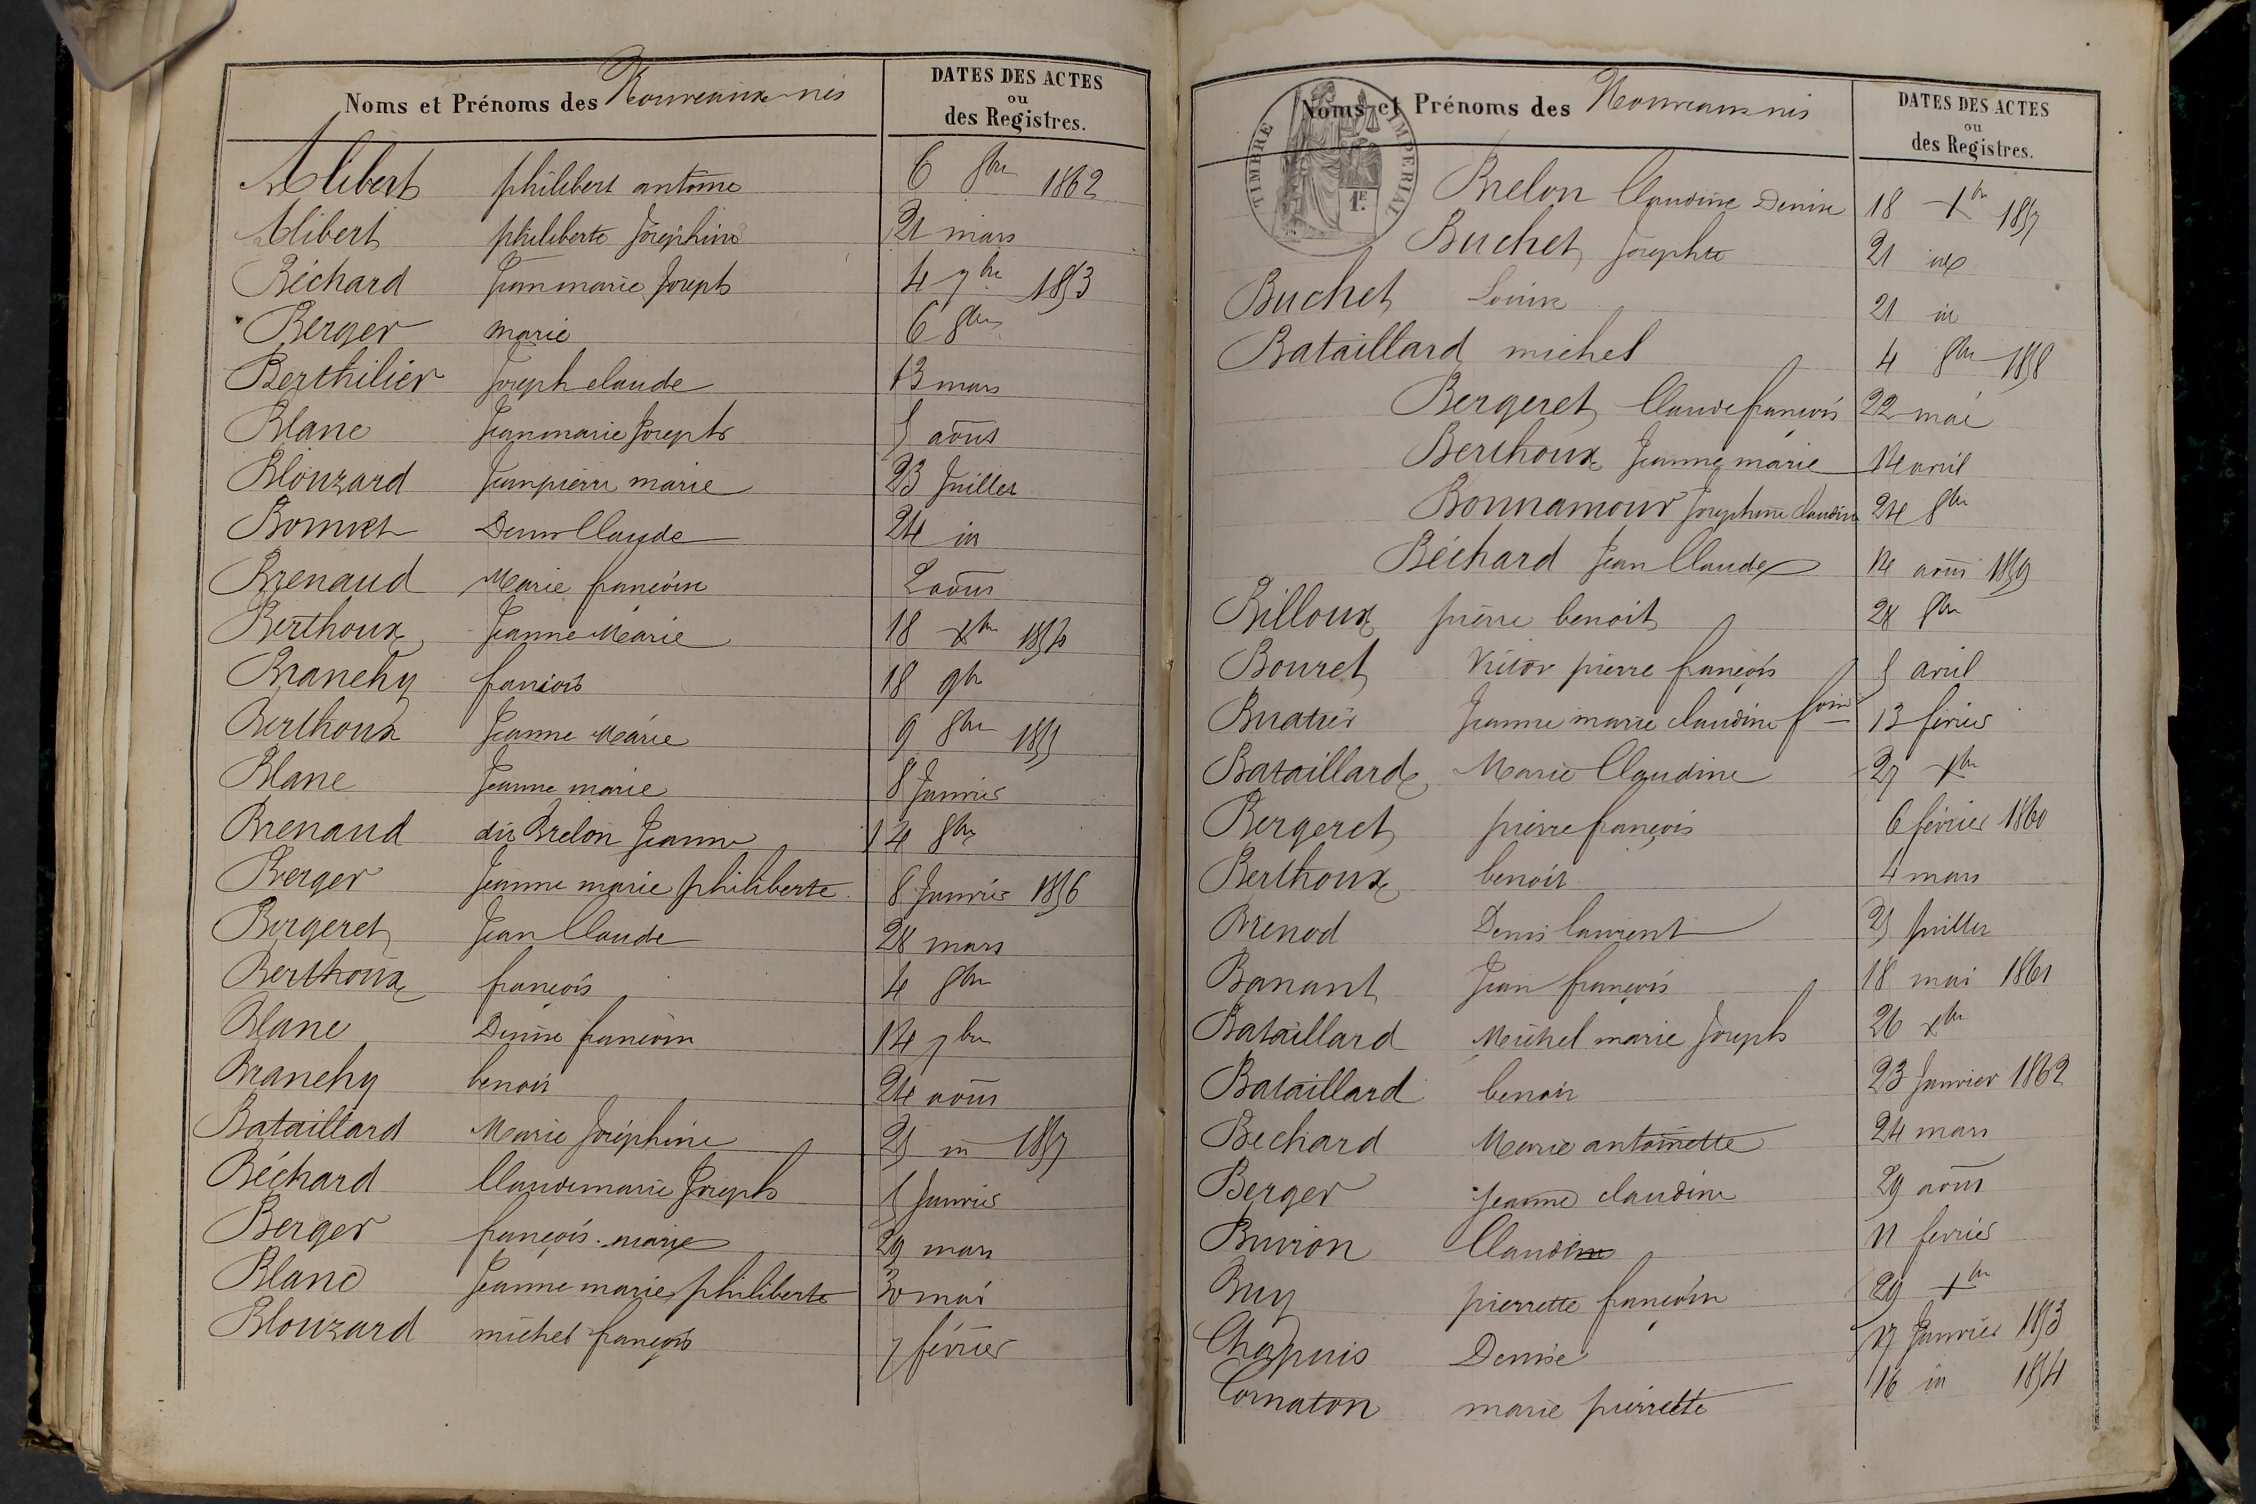 Noms et Prénoms des Nouveaux nés
DATES DES ACTES
ou
des Registres.
Alibert philibert antoine 6 8bre 1862
Alibert philiberte Joséphine 21 mars
Béchard Jean marie Joseph 4 7bre 1853
Berger marie 6 8bre
Berthilier Joseph claude 13 mars
Blanc Jean marie Joseph 5 août
Blouzard Jean pierre marie 23 Juillet
Bonnet Denis Claude 24 id
Brenaud Marie françoise 2 août
Berthoux Jeanne Marie 18 Xbre 1854
Branchy françois 18 9bre
Berthoux Jeanne Marie 9 8bre 1855
Blanc Jeanne marie 8 Janvier
Brenaud dit Brelon Jeanne 14 8bre
Berger Jeanne marie philiberte 8 Janvier 1856
Bergeret Jean Claude 28 mars
Berthoux françois 4 8bre
Blanc Denise françoise 14 7bre
Branchy benoit 24 août
Bataillard Marie Joséphine 25 id 1857
Béchard Claude marie Joseph 5 Janvier
Berger françois marie 29 mars
Blanc Jeanne marie philiberte 30 mai
Blouzard michel françois 7 février
TIMBRE IMPERIAL
1F.
Noms et Prénoms des Nouveaux nés
DATES DES ACTES
ou
des Registres.
Brelon Claudine Denise 18 Xbre 1857
Buchet Josephte 21 id
Buchet Louise 21 id
Bataillard michel 4 8bre 1858
Bergeret Claude françois 22 mai
Berthoux Jeanne marie 14 avril
Bonnamour Josephine Claudine 24 8bre
Béchard Jean Claude 14 août 1859
Billoux pierre benoit 28 8bre
Bouret Victor pierre françois 5 avril
Buatier Jeanne marie claudine foise 13 février
Bataillard Marie Claudine 27 Xbre
Bergeret pierre françois 6 février 1860
Berthoux benoit 4 mars
Brenod Denis laurent 25 juillet
Banant Jean françois 18 mai 1861
Bataillard Michel marie Joseph 26 Xbre
Bataillard benoit 23 Janvier 1862
Bechard Marie antoinette 24 mars
Berger Jeanne claudine 29 août
Buvron Claudine 11 fevrier
Buy pierrette françoise 29 Xbre
Chapuis Denise 17 Janvier 1853
Cornaton marie pierrette 16 id 1854